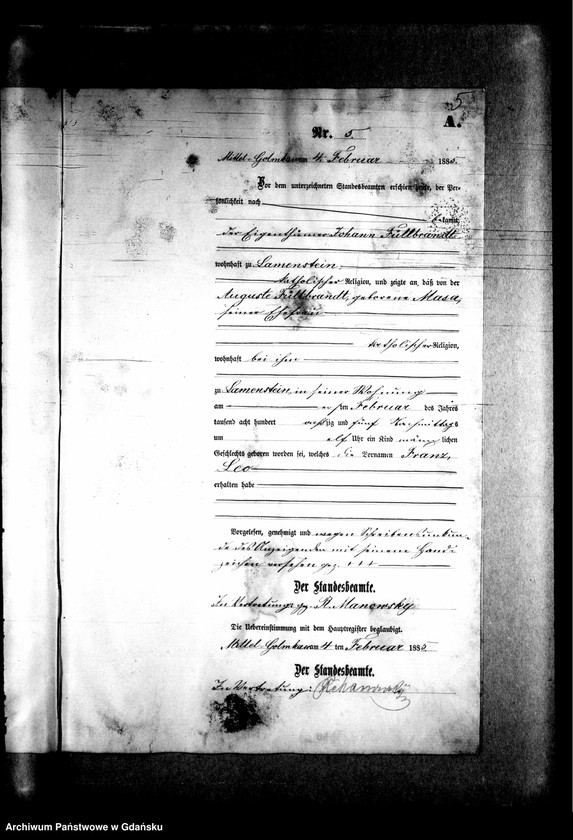 5
A.
Nr. 5.
Mittel-Golmkau am 4. Februar 1885.
Vor dem unterzeichneten Standesbeamten erschien heute, der Per-
sönlichkeit nach
kannt,
der Eigenthümer Johann Füllbrandt
wohnhaft zu Lamenstein
katholischer Religion, und zeigte an, daß von der
Auguste Füllbrandt, geborene Masa,
seiner Ehefrau
katholischer Religion,
wohnhaft bei ihm
zu Lamenstein, in seiner Wohnung
am ersten Februar des Jahres
tausend acht hundert achtzig und fünf Nachmittags
um elf Uhr ein Kind männlichen
Geschlechts geboren worden sei, welches die Vornamen Franz,
Leo
erhalten habe
Vorgelesen, genehmigt und wegen Schreibensunkun-
de des Anzeigenden mit seinem Hand-
zeichen versehen gez. + + +
Der Standesbeamte.
In Vertretung gez. R. Manowsky
Die Uebereinstimmung mit dem Hauptregister beglaubigt.
Mittel-Golmkau am 4 ten Februar 1885.
Der Standesbeamte.
In Vertretung:
Archiwum Państwowe w Gdańsku